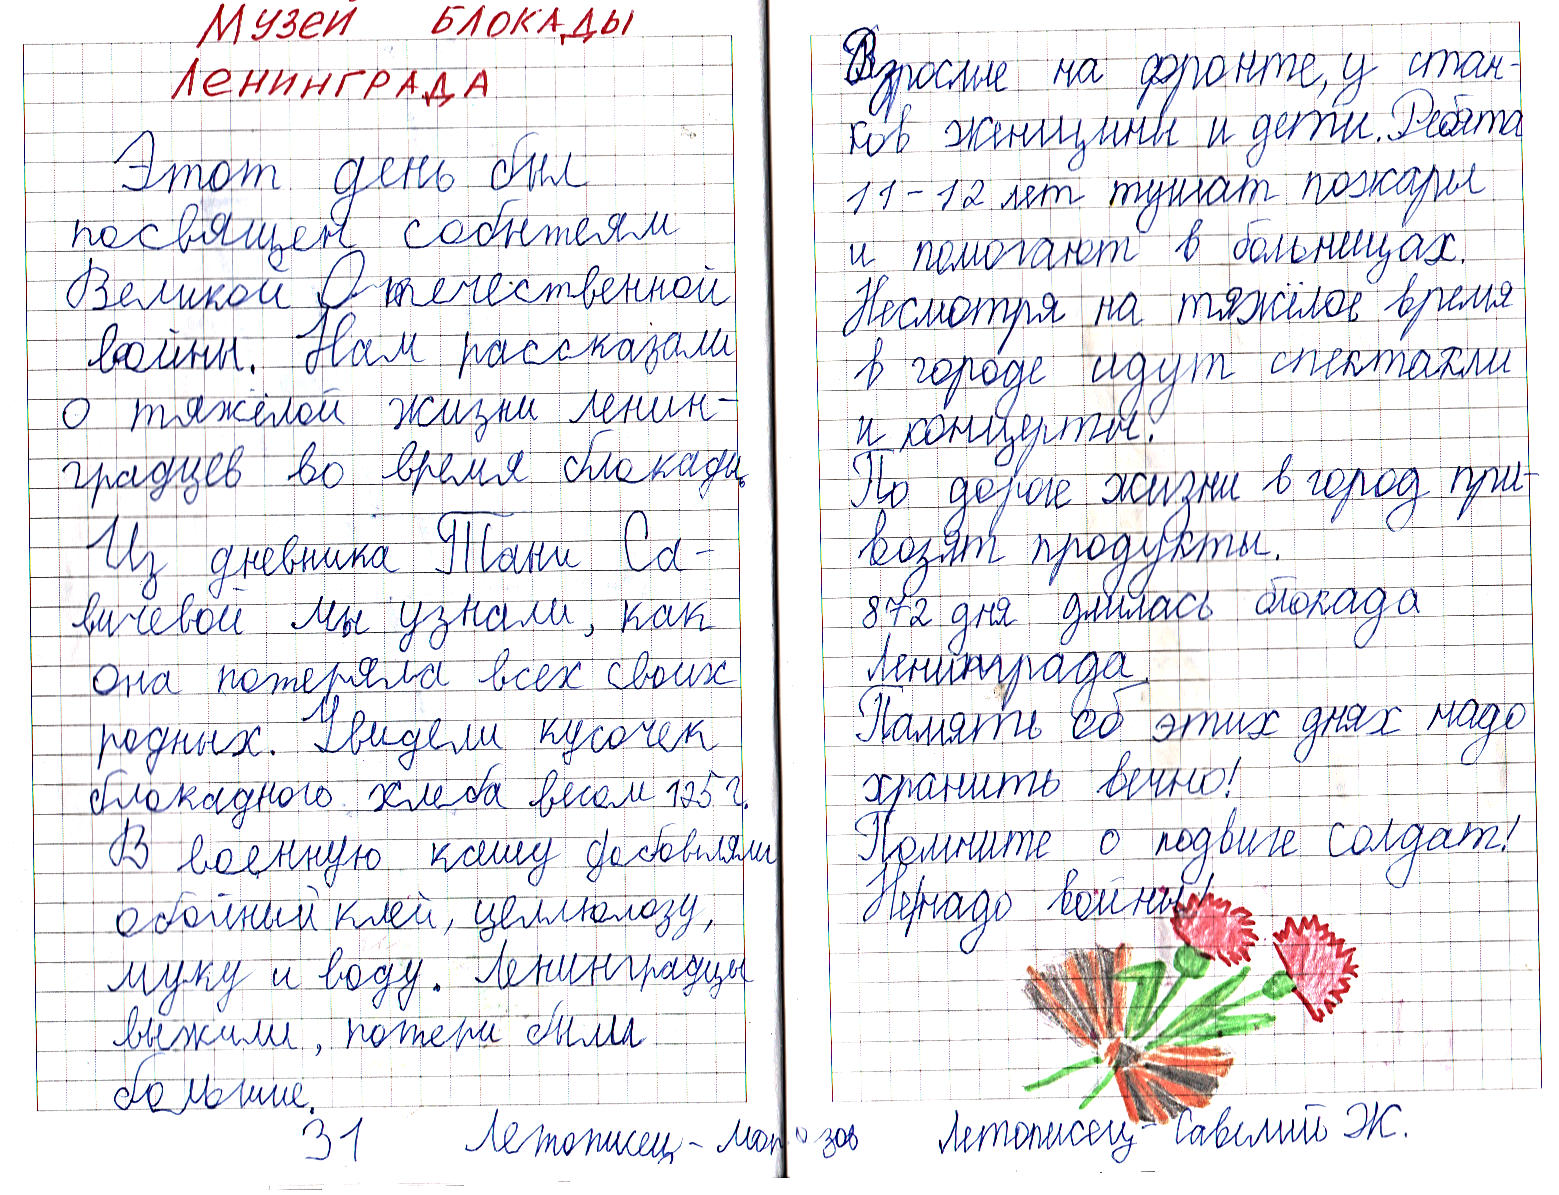 Музей блокады
Ленинграда
Этот день был
посвящен событеям
Великой Отечественной
войны. Нам рассказали
о тяжёлой жизни ленин-
градцев во время блокады.
Из дневника Тани Са-
вичевой мы узнали, как
она потеряла всех своих
родных. Увидели кусочек
блокадного хлеба весом 125 г.
В военную кашу добовляли
обойный клей, целлюлозу,
муку и воду. Ленинградцы
выжили, потери были
большие.
31 Летописец - Морозов
Взрослые на фронте, у стан-
ков женщины и дети. Ребята
11-12 лет тушат пожары
и помогают в больницах.
Несмотря на тяжёлое время
в городе идут спектакли
и концерты.
По дороге жизни в город при-
возят продукты.
872 дня длилась блокада
Ленинграда.
Память об этих днях надо
хранить вечно!
Помните о подвиге солдат!
Не надо войны!
Летописец - Савелий Ж.